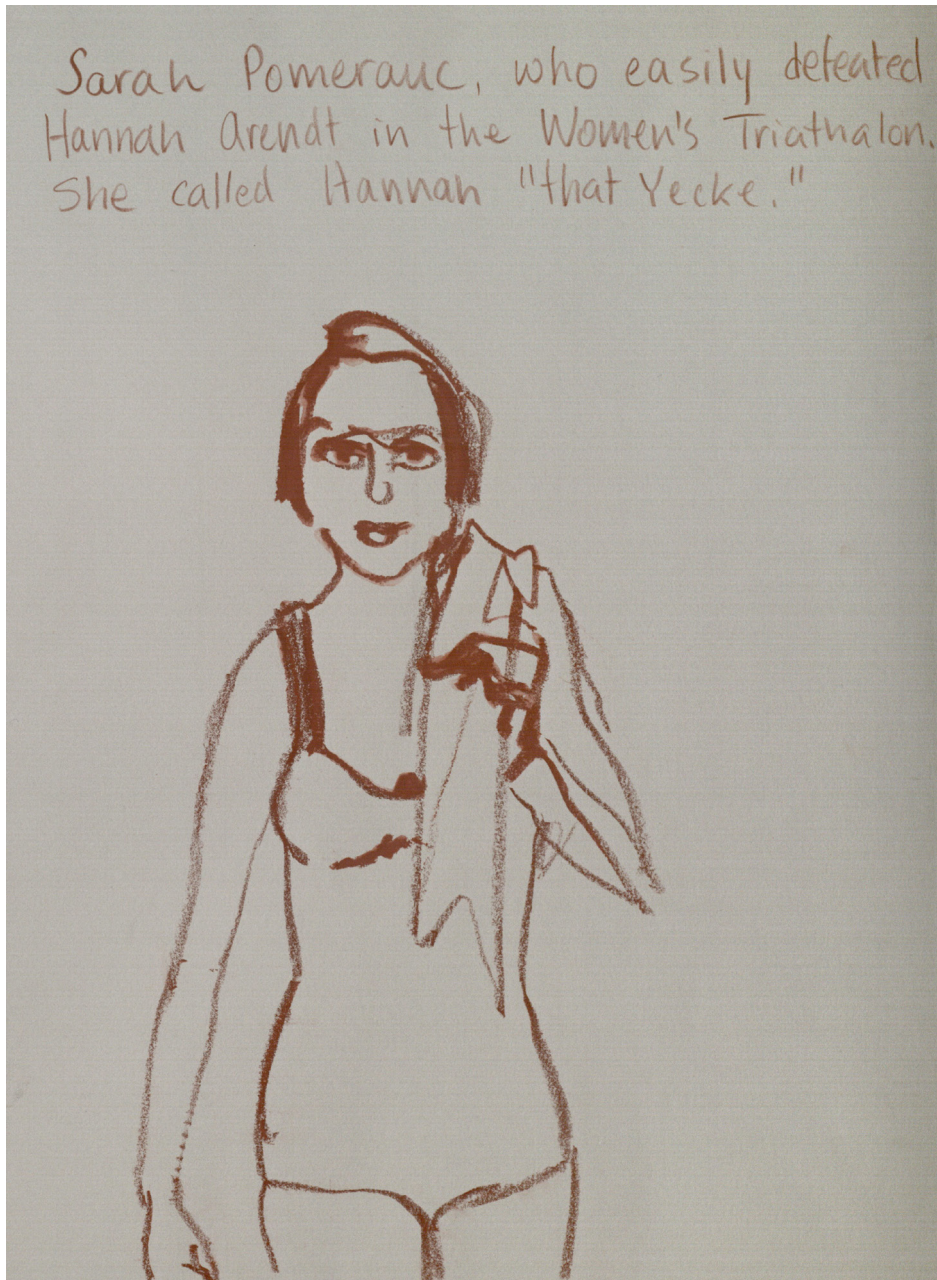 Sarah Pomeranc, who easily defeated
Hannah Arendt in the Women's Triathalon.
She called Hannah "that Yecke."